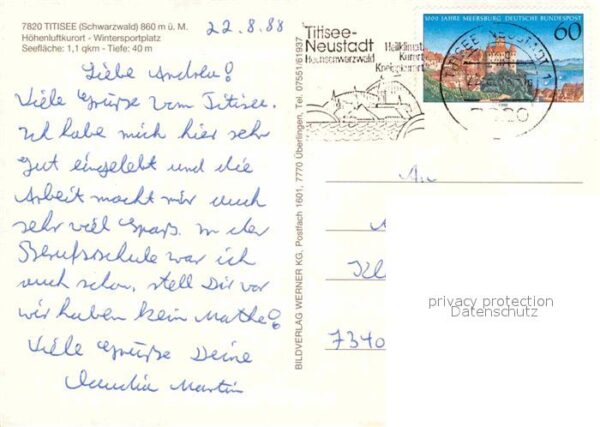 7820 TITISEE (Schwarzwald) 860 m ü. M.
Höhenluftkurort - Wintersportplatz
Seefläche: 1,1 qkm - Tiefe: 40 m
22.8.88
Liebe Andrea!
Viele Grüße vom Titisee.
Ich habe mich hier sehr
gut eingelebt und die
Arbeit macht mir auch
sehr viel Spaß. In der
Berufsschule war ich
auch schon, stell Dir vor
wir haben kein Mathe!
Viele Grüße Deine
Claudia Martin
BILDVERLAG WERNER KG. Postfach 1601, 7770 Überlingen, Tel. 07551/61937
Titisee-
Neustadt
Hochschwarzwald
Heilklimat
Kneippkurort
1000 JAHRE MEERSBURG DEUTSCHE BUNDESPOST
60
TITISEE-NEUSTADT 1
7820
An
Kl
7340
privacy protection
Datenschutz